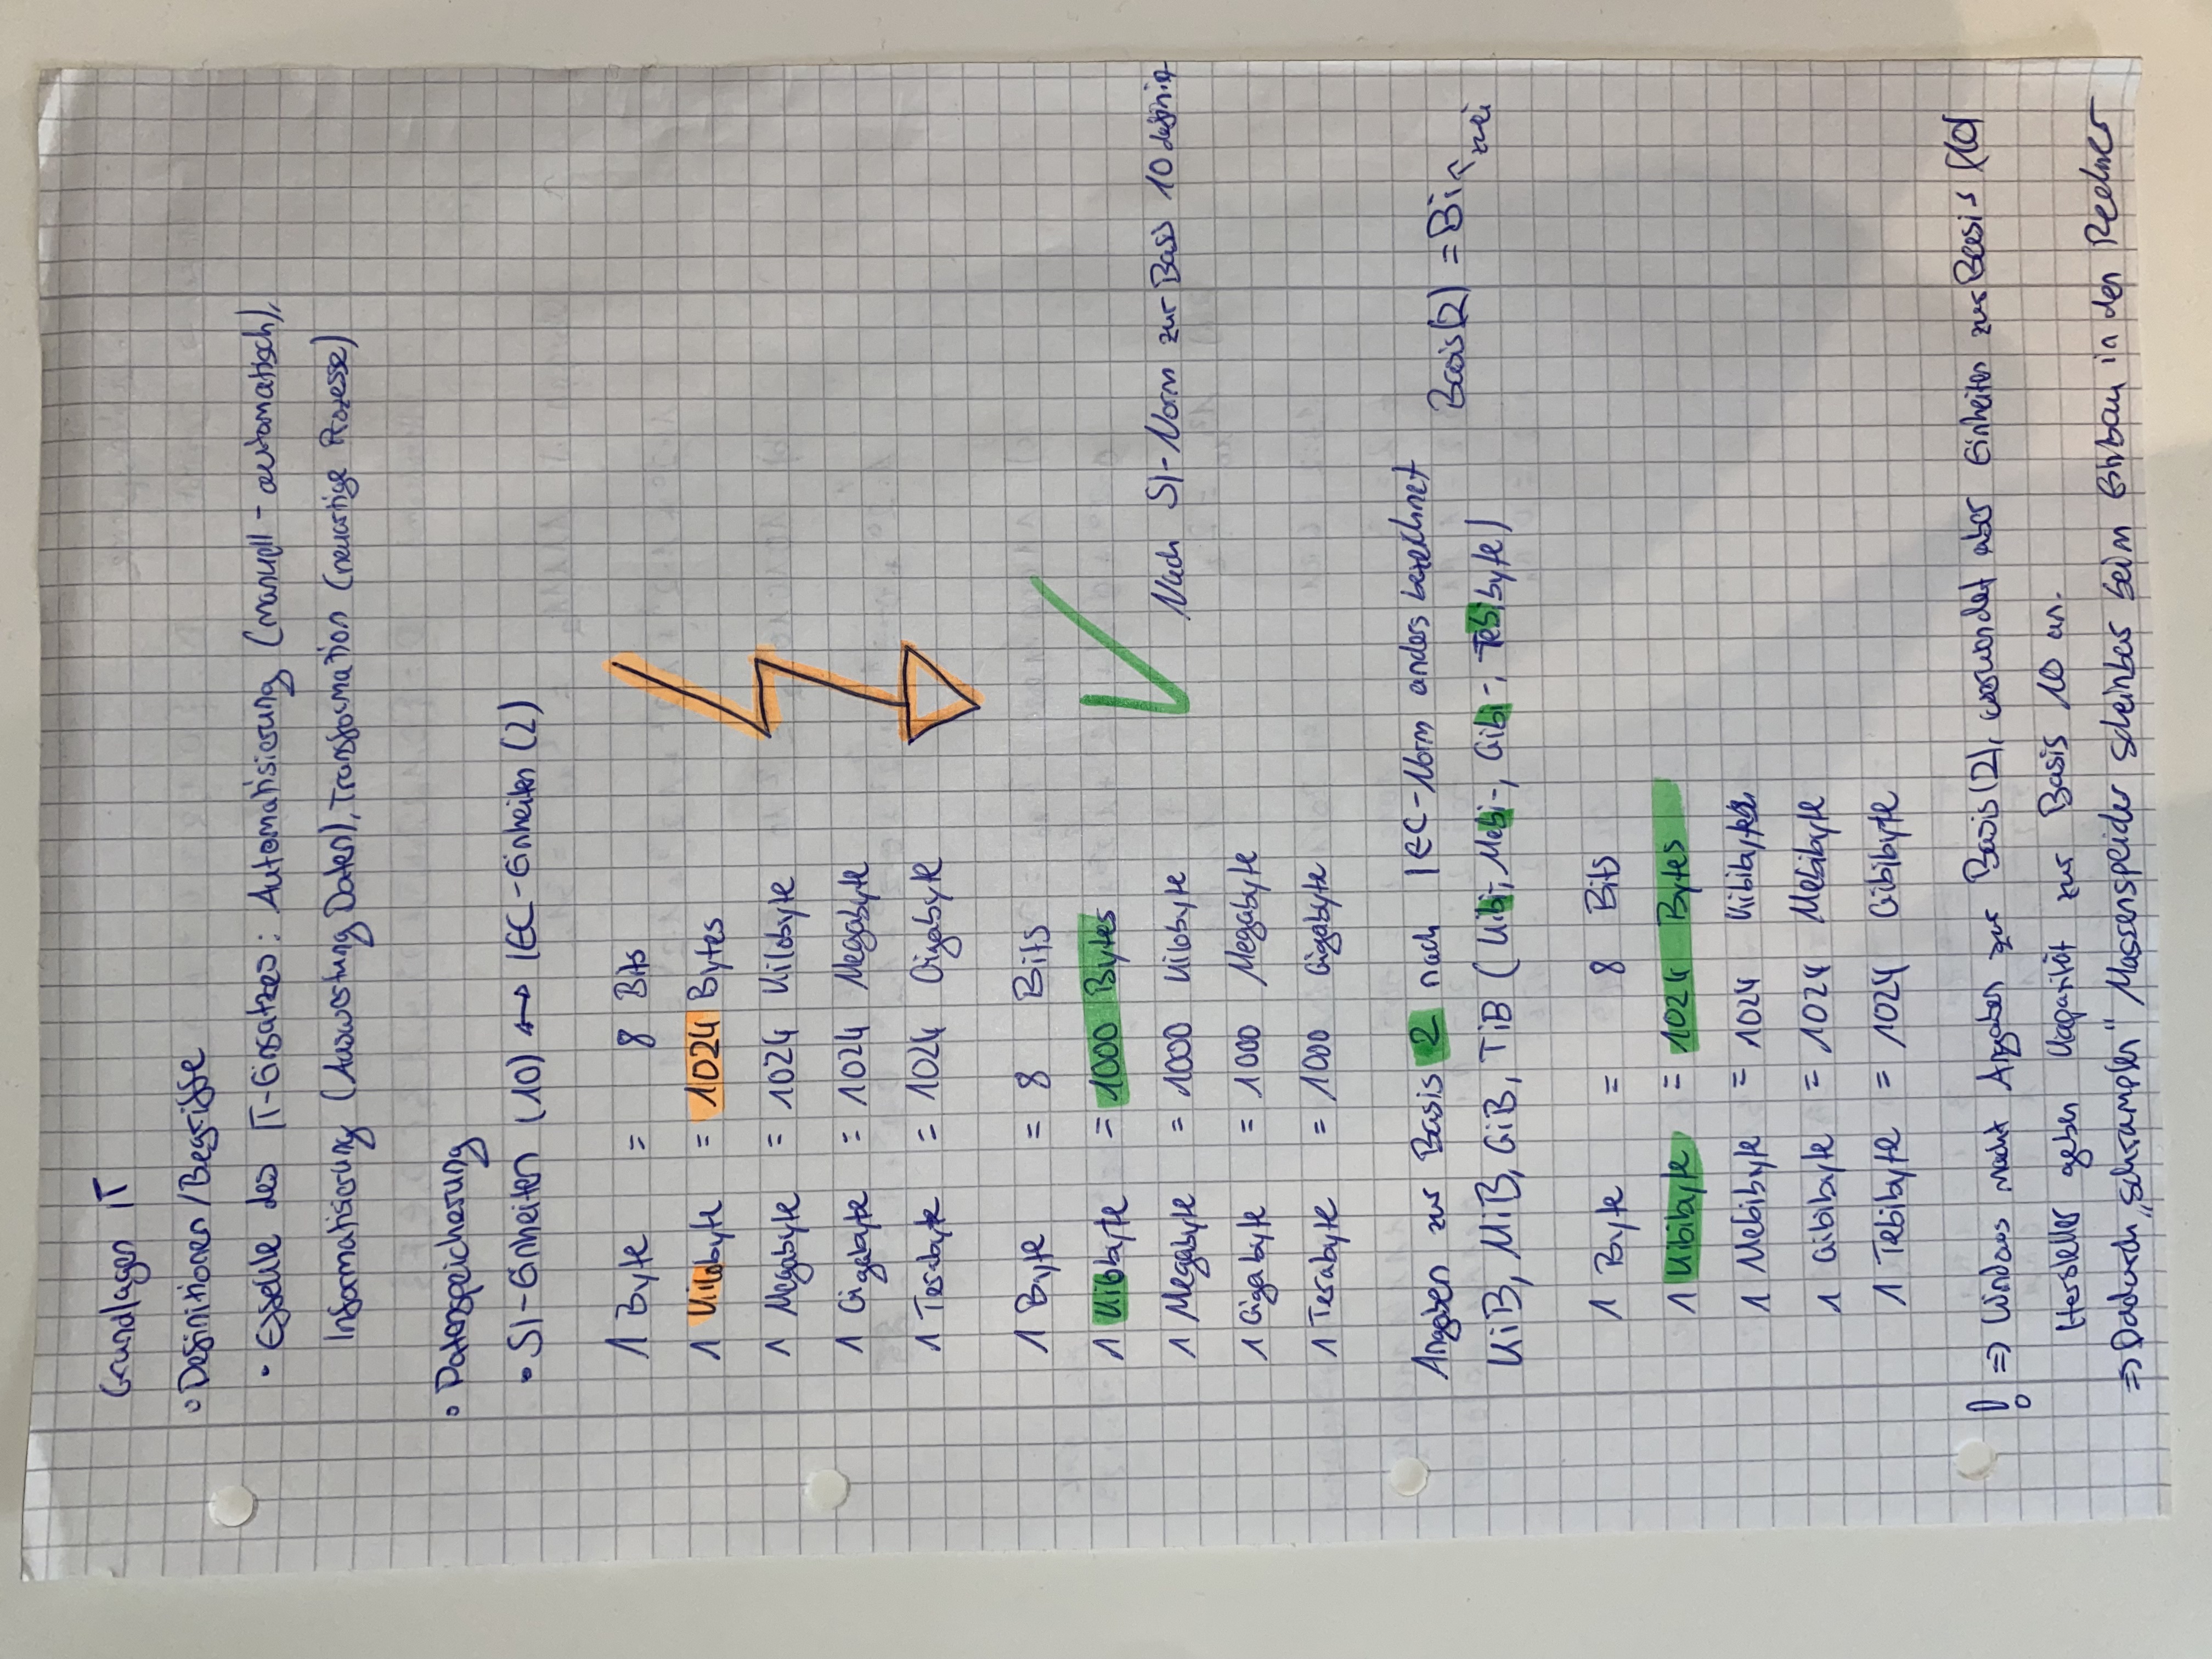 Grundlagen IT
◦ Definitionen/Begriffe
• Effekte des IT-Einsatzes: Automatisierung (manuell - automatisch),
Informatisierung (Auswertung Daten), Transformation (neuartige Prozesse)
◦ Datenspeicherung
• SI-Einheiten (10) ↔ IEC-Einheiten (2)
1 Byte = 8 Bits
1 Kilobyte = 1024 Bytes
1 Megabyte = 1024 Kilobyte
1 Gigabyte = 1024 Megabyte
1 Terabyte = 1024 Gigabyte
1 Byte = 8 Bits
1 Kilobyte = 1000 Bytes
1 Megabyte = 1000 Kilobyte Nach SI-Norm zur Basis 10 definier
1 Gigabyte = 1000 Megabyte
1 Terabyte = 1000 Gigabyte
Angaben zur Basis 2 nach IEC-Norm anders bezeichnet Basis(2) = Bi
KiB, MiB, GiB, TiB (Kibi, Mebi-, Gibi-, Tebibyte) zwei
1 Byte = 8 Bits
1 Kibibyte = 1024 Bytes
1 Mebibyte = 1024 Kibibyte
1 Gibibyte = 1024 Mebibyte
1 Tebibyte = 1024 Gibibyte
! => Windows macht Angaben zur Basis(2), verwendet aber Einheiten zur Basis (10)
Hersteller geben Kapazität zur Basis 10 an.
=> Dadurch „schrumpfen" Massenspeicher scheinbar beim Einbau in den Rechner